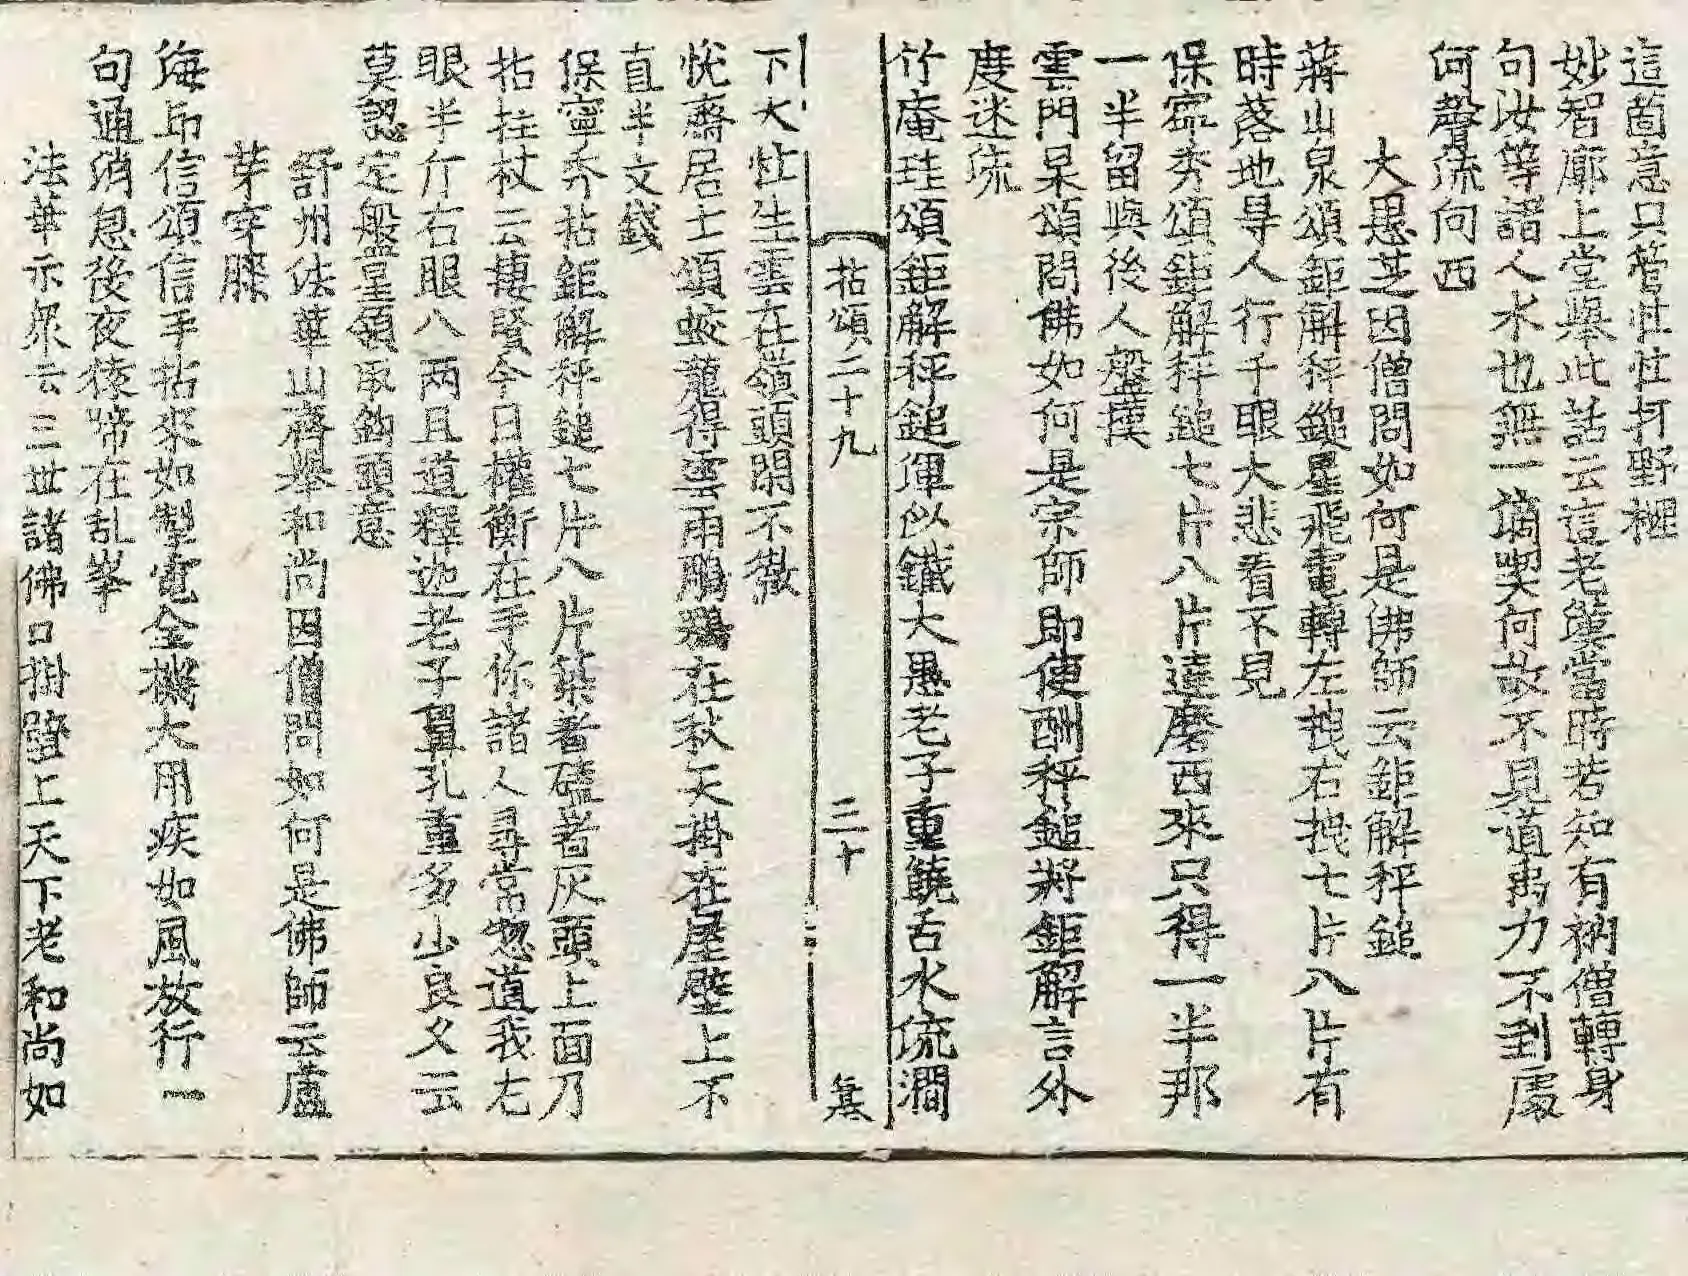 這箇意只管忙忙打野榸
妙智廓上堂擧此話云這老漢當時若知有衲僧轉身
句汝等諸人水也無一滴喫何故不見道禹力不到處
何聲流向西
大愚芝因僧問如何是佛師云鉅解秤鎚
蔣山泉頌鉅解秤鎚星飛電轉左拽右拽七片八片有
時落地尋人行千眼大悲看不見
保寧秀頌鉅解秤鎚七片八片達磨西來只得一半那
一半留與後人盤㨾
雲門杲頌問佛如何是宗師即使酬秤鎚將鉅解言外
度迷流
竹庵珪頌鉅解秤鎚渾似鐵大愚老子重饒舌水流澗
拈頌二十九 三十
下大忙生雲在嶺頭閑不徹
悅齋居士頌蛟龍得雲雨鵰鶚在秋天掛在屋壁上不
直半文錢
保寧秀拈鉅解秤鎚七片八片築着磕着灰頭上面乃
拈拄杖云棲賢今日權衡在手你諸人尋常惣道我左
眼半斤右眼八兩且道釋迦老子鼻孔重多少良久云
莫認定盤星領取鈎頭意
舒州法華山齊擧和尚因僧問如何是佛師云蘆
芽穿膝
海印信頌信手拈來如掣電全機大用疾如風放行一
句通消息後夜猿啼在乱峯
法華示衆云三世諸佛口掛壁上天下老和尚如